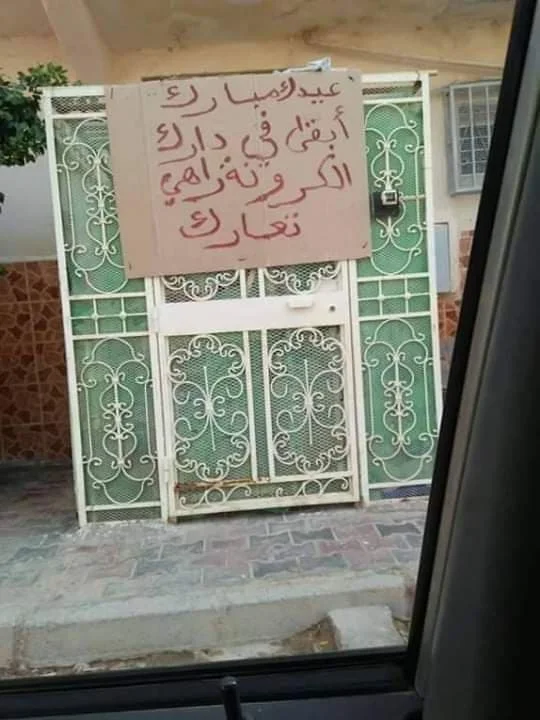 عيدك مبارك
أبقى في دارك
الكرونة راهي
تعارك